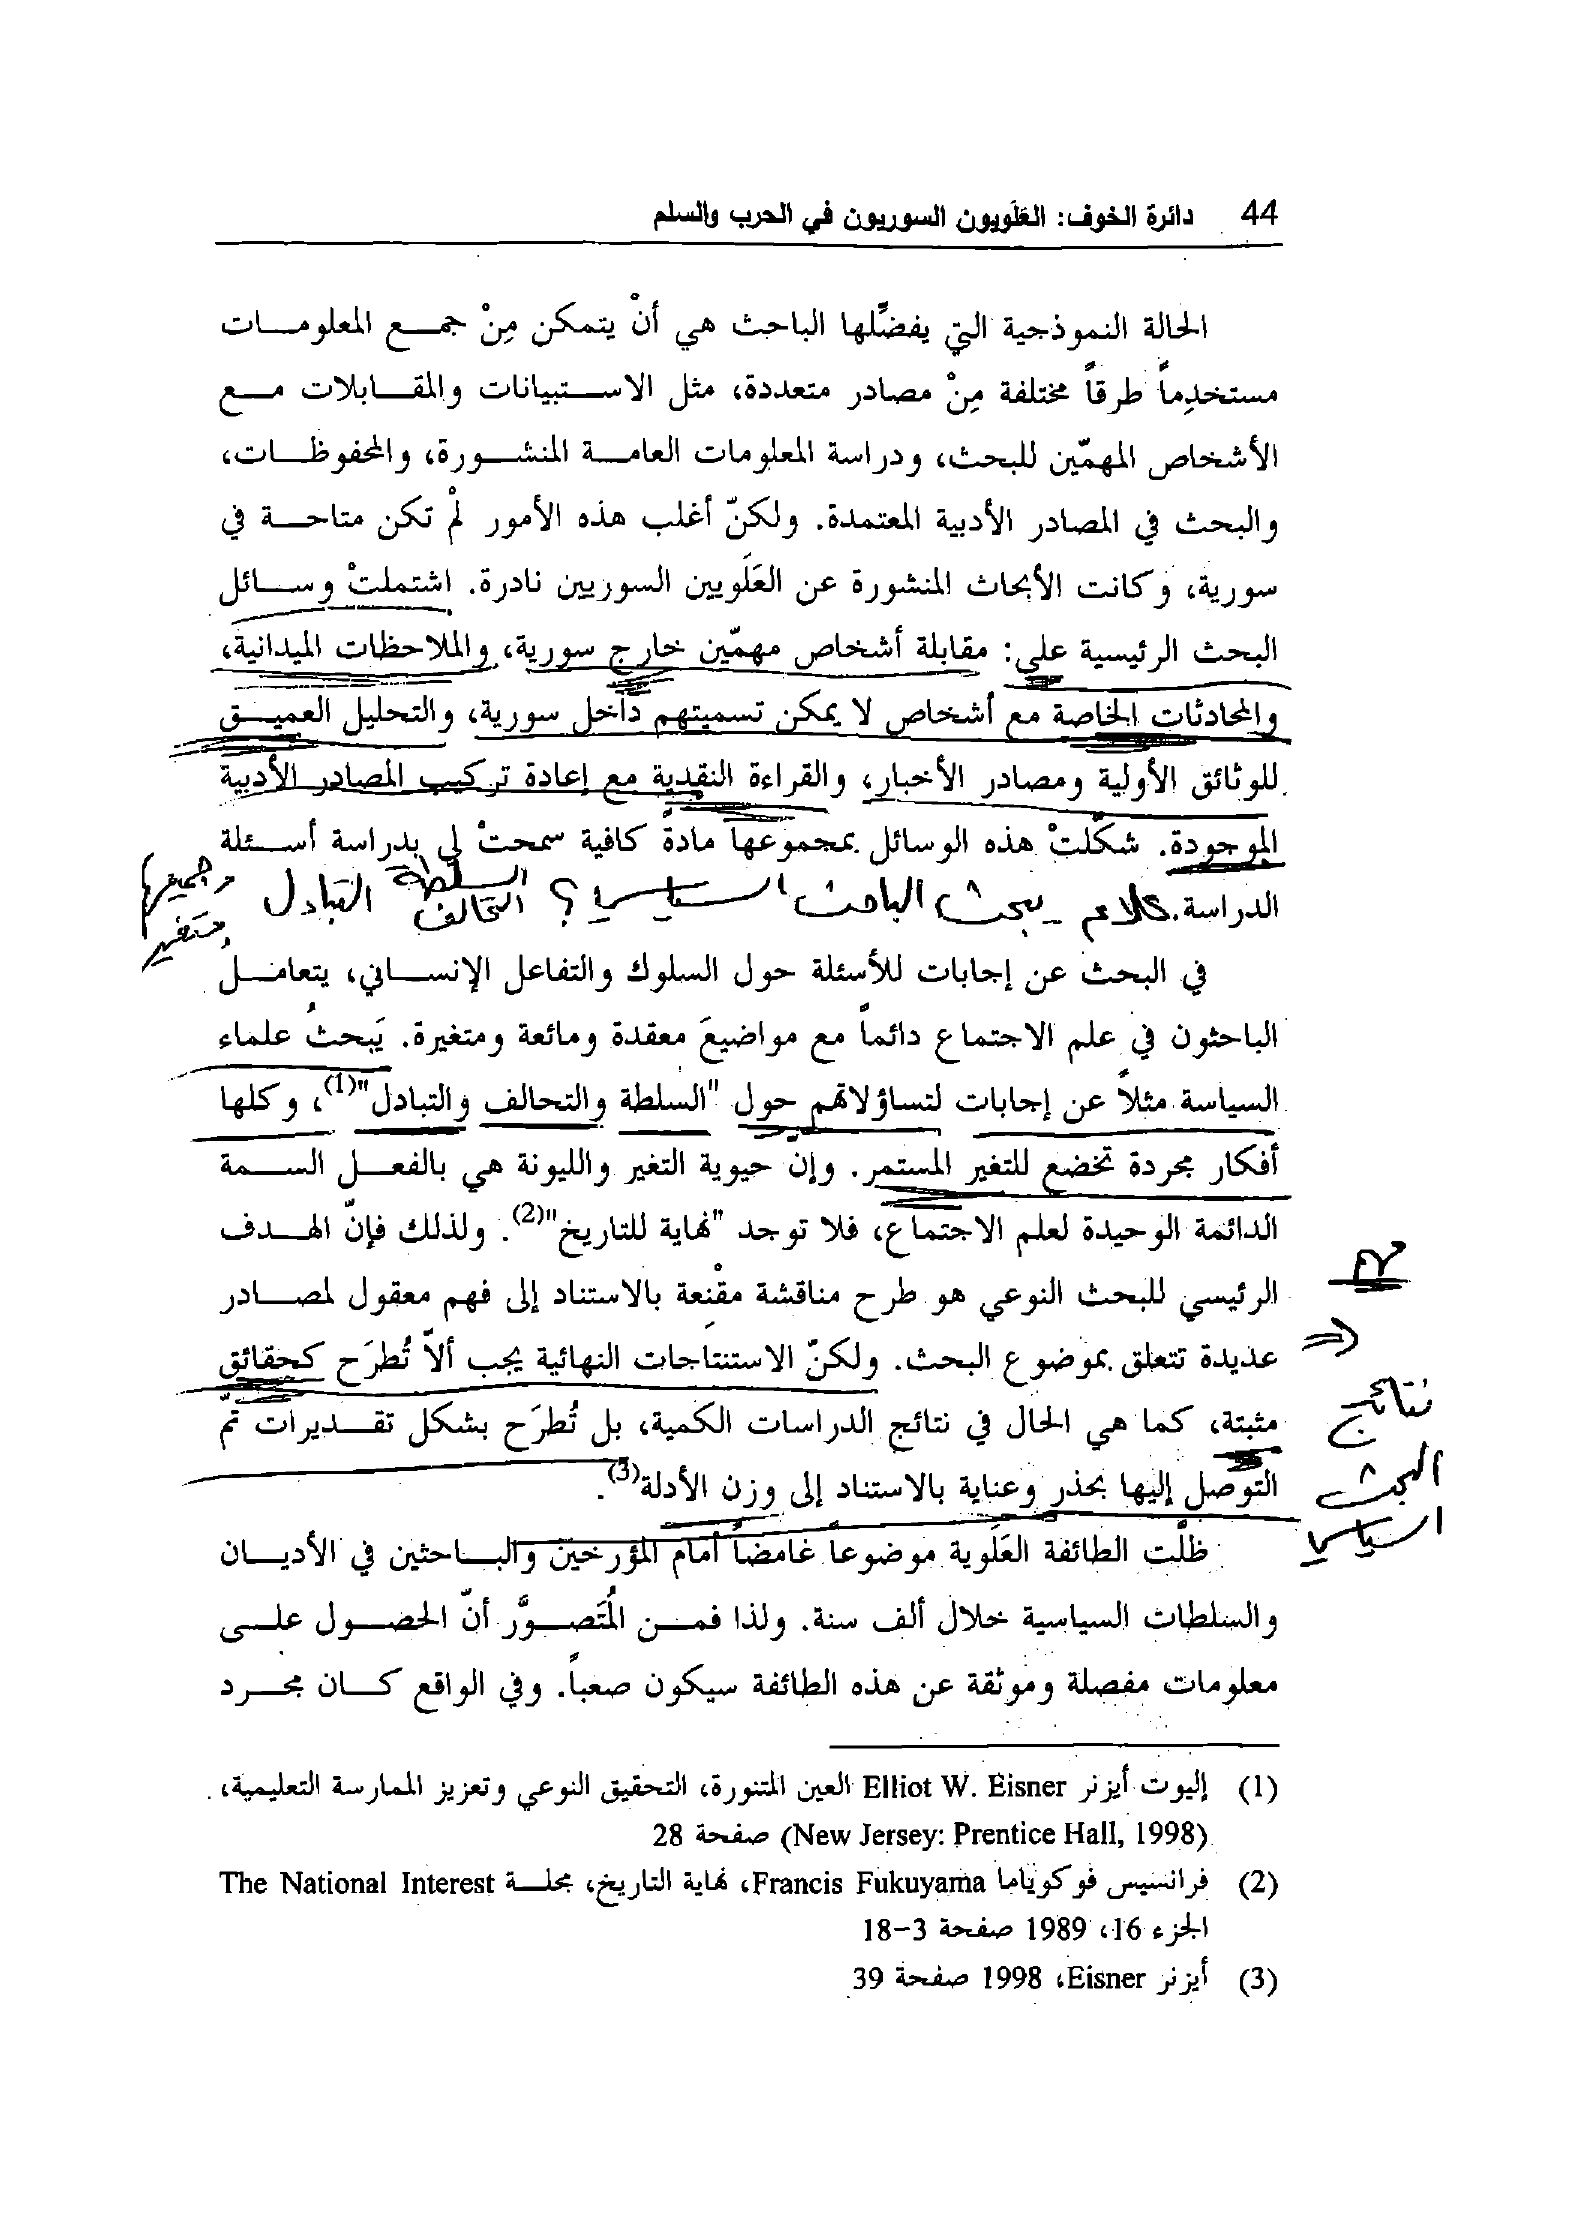 44 دائرة الخوف: العَلَويون السوريون في الحرب والسلم
الحالة النموذجية التي يفضِّلها الباحث هي أنْ يتمكن مِنْ جمع المعلومات
مستخدِماً طرقاً مختلفة مِنْ مصادر متعددة، مثل الاستبيانات والمقابلات مع
الأشخاص المهمّين للبحث، ودراسة المعلومات العامة المنشورة، والمحفوظات،
والبحث في المصادر الأدبية المعتمدة. ولكنّ أغلب هذه الأمور لمْ تكن متاحة في
سورية، وكانت الأبحاث المنشورة عن العَلَويين السوريين نادرة. اشتملتْ وسائل
البحث الرئيسية على: مقابلة أشخاص مهمّين خارج سورية، والملاحظات الميدانية،
والمحادثات الخاصة مع أشخاص لا يمكن تسميتهم داخل سورية، والتحليل العميق
للوثائق الأولية ومصادر الأخبار، والقراءة النقدية مع إعادة تركيب المصادر الأدبية
الموجودة. شكّلتْ هذه الوسائل بمجموعها مادةً كافية سمحتْ لي بدراسة أسئلة
الدراسة.
يبحث الباحث السياسي؟ السلطة التحالف التبادل
في البحث عن إجابات للأسئلة حول السلوك والتفاعل الإنساني، يتعامل
الباحثون في علم الاجتماع دائماً مع مواضيعَ معقدة ومائعة ومتغيرة. يَبحثُ علماء
السياسة مثلاً عن إجابات لتساؤلاتهم حول "السلطة والتحالف والتبادل"(1)، وكلها
أفكار مجردة تخضع للتغير المستمر. وإن حيوية التغير والليونة هي بالفعل السمة
الدائمة الوحيدة لعلم الاجتماع، فلا توجد "نهاية للتاريخ"(2). ولذلك فإنّ الهدف
الرئيسي للبحث النوعي هو طرح مناقشة مقْنعة بالاستناد إلى فهم معقول لمصادر
عديدة تتعلق بموضوع البحث. ولكنّ الاستنتاجات النهائية يجب ألاّ تُطرَح كحقائق
مثبتة، كما هي الحال في نتائج الدراسات الكمية، بل تُطرَح بشكل تقديرات تمّ
التوصل إليها بحذر وعناية بالاستناد إلى وزن الأدلة(3).
نتائج
البحث
السياسي
ظلّت الطائفة العَلَوية موضوعاً غامضاً أمام المؤرخين والباحثين في الأديان
والسلطات السياسية خلال ألف سنة. ولذا فمن المُتَصوَّر أنّ الحصول على
معلومات مفصلة وموثقة عن هذه الطائفة سيكون صعباً. وفي الواقع كان مجرد
(1) إليوت أيزنر Elliot W. Eisner العين المتنورة، التحقيق النوعي وتعزيز الممارسة التعليمية،
(New Jersey: Prentice Hall, 1998) صفحة 28
(2) فرانسيس فوكوياما Francis Fukuyama، نهاية التاريخ، مجلة The National Interest
الجزء 16، 1989 صفحة 3-18
(3) أيزنر Eisner، 1998 صفحة 39